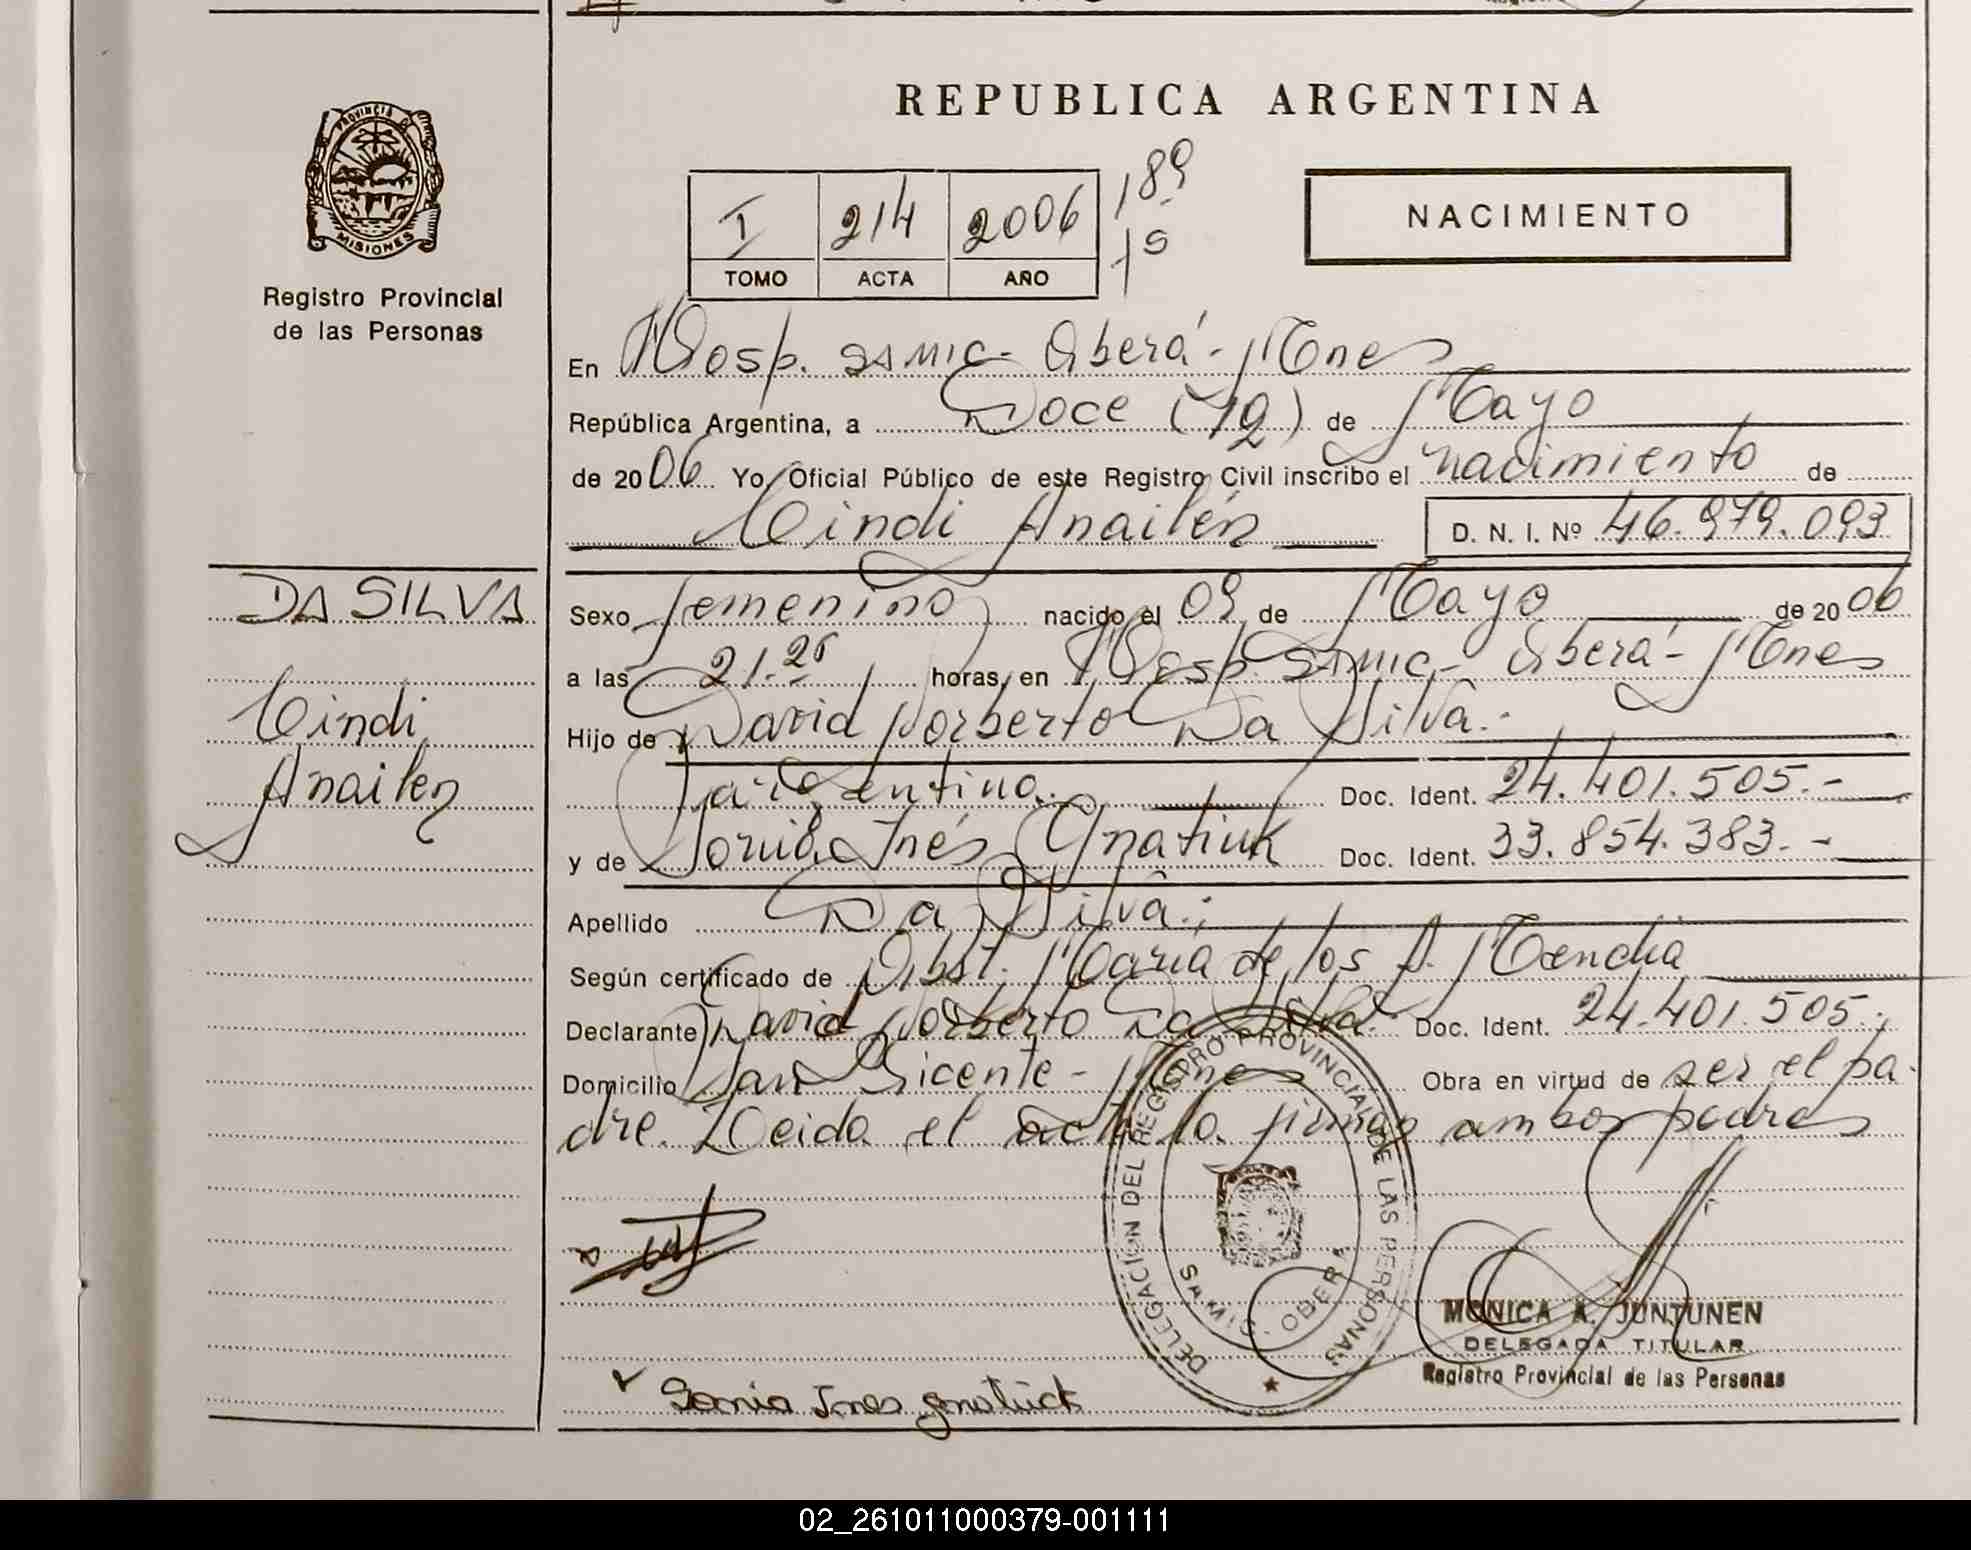 REPUBLICA ARGENTINA
PROVINCIA DE
MISIONES
Registro Provincial
de las Personas
I 214 2006 189
TOMO ACTA AÑO
NACIMIENTO
En Hosp. SAMIC - Oberá - Mnes
República Argentina, a Doce (12) de Mayo
de 2006 Yo, Oficial Público de este Registro Civil inscribo el nacimiento de
Cindi Anailén D. N. I. Nº 46.979.093
DA SILVA
Cindi
Anailen
Sexo femenino nacido el 09 de Mayo de 2006
a las 21.25 horas, en Hosp. SAMIC - Oberá - Mnes
Hijo de David Norberto Da Silva.-
argentina. Doc. Ident. 24.401.505.-
y de Sonia Inés Gnatiuk Doc. Ident. 33.854.383.-
Apellido Da Silva.-
Según certificado de Obst. María de los A.
Declarante David Norberto Da Silva Doc. Ident. 24.401.505.-
Domicilio San Vicente - Mnes Obra en virtud de ser el pa-
dre. Leida el acta la firman ambos padres
DELEGACION DEL REGISTRO PROVINCIAL DE LAS PERSONAS
SAMIC - OBERA
MONICA A. JUNTUNEN
DELEGADA TITULAR
Registro Provincial de las Personas
Sonia Ines gnatiuck
02_261011000379-001111